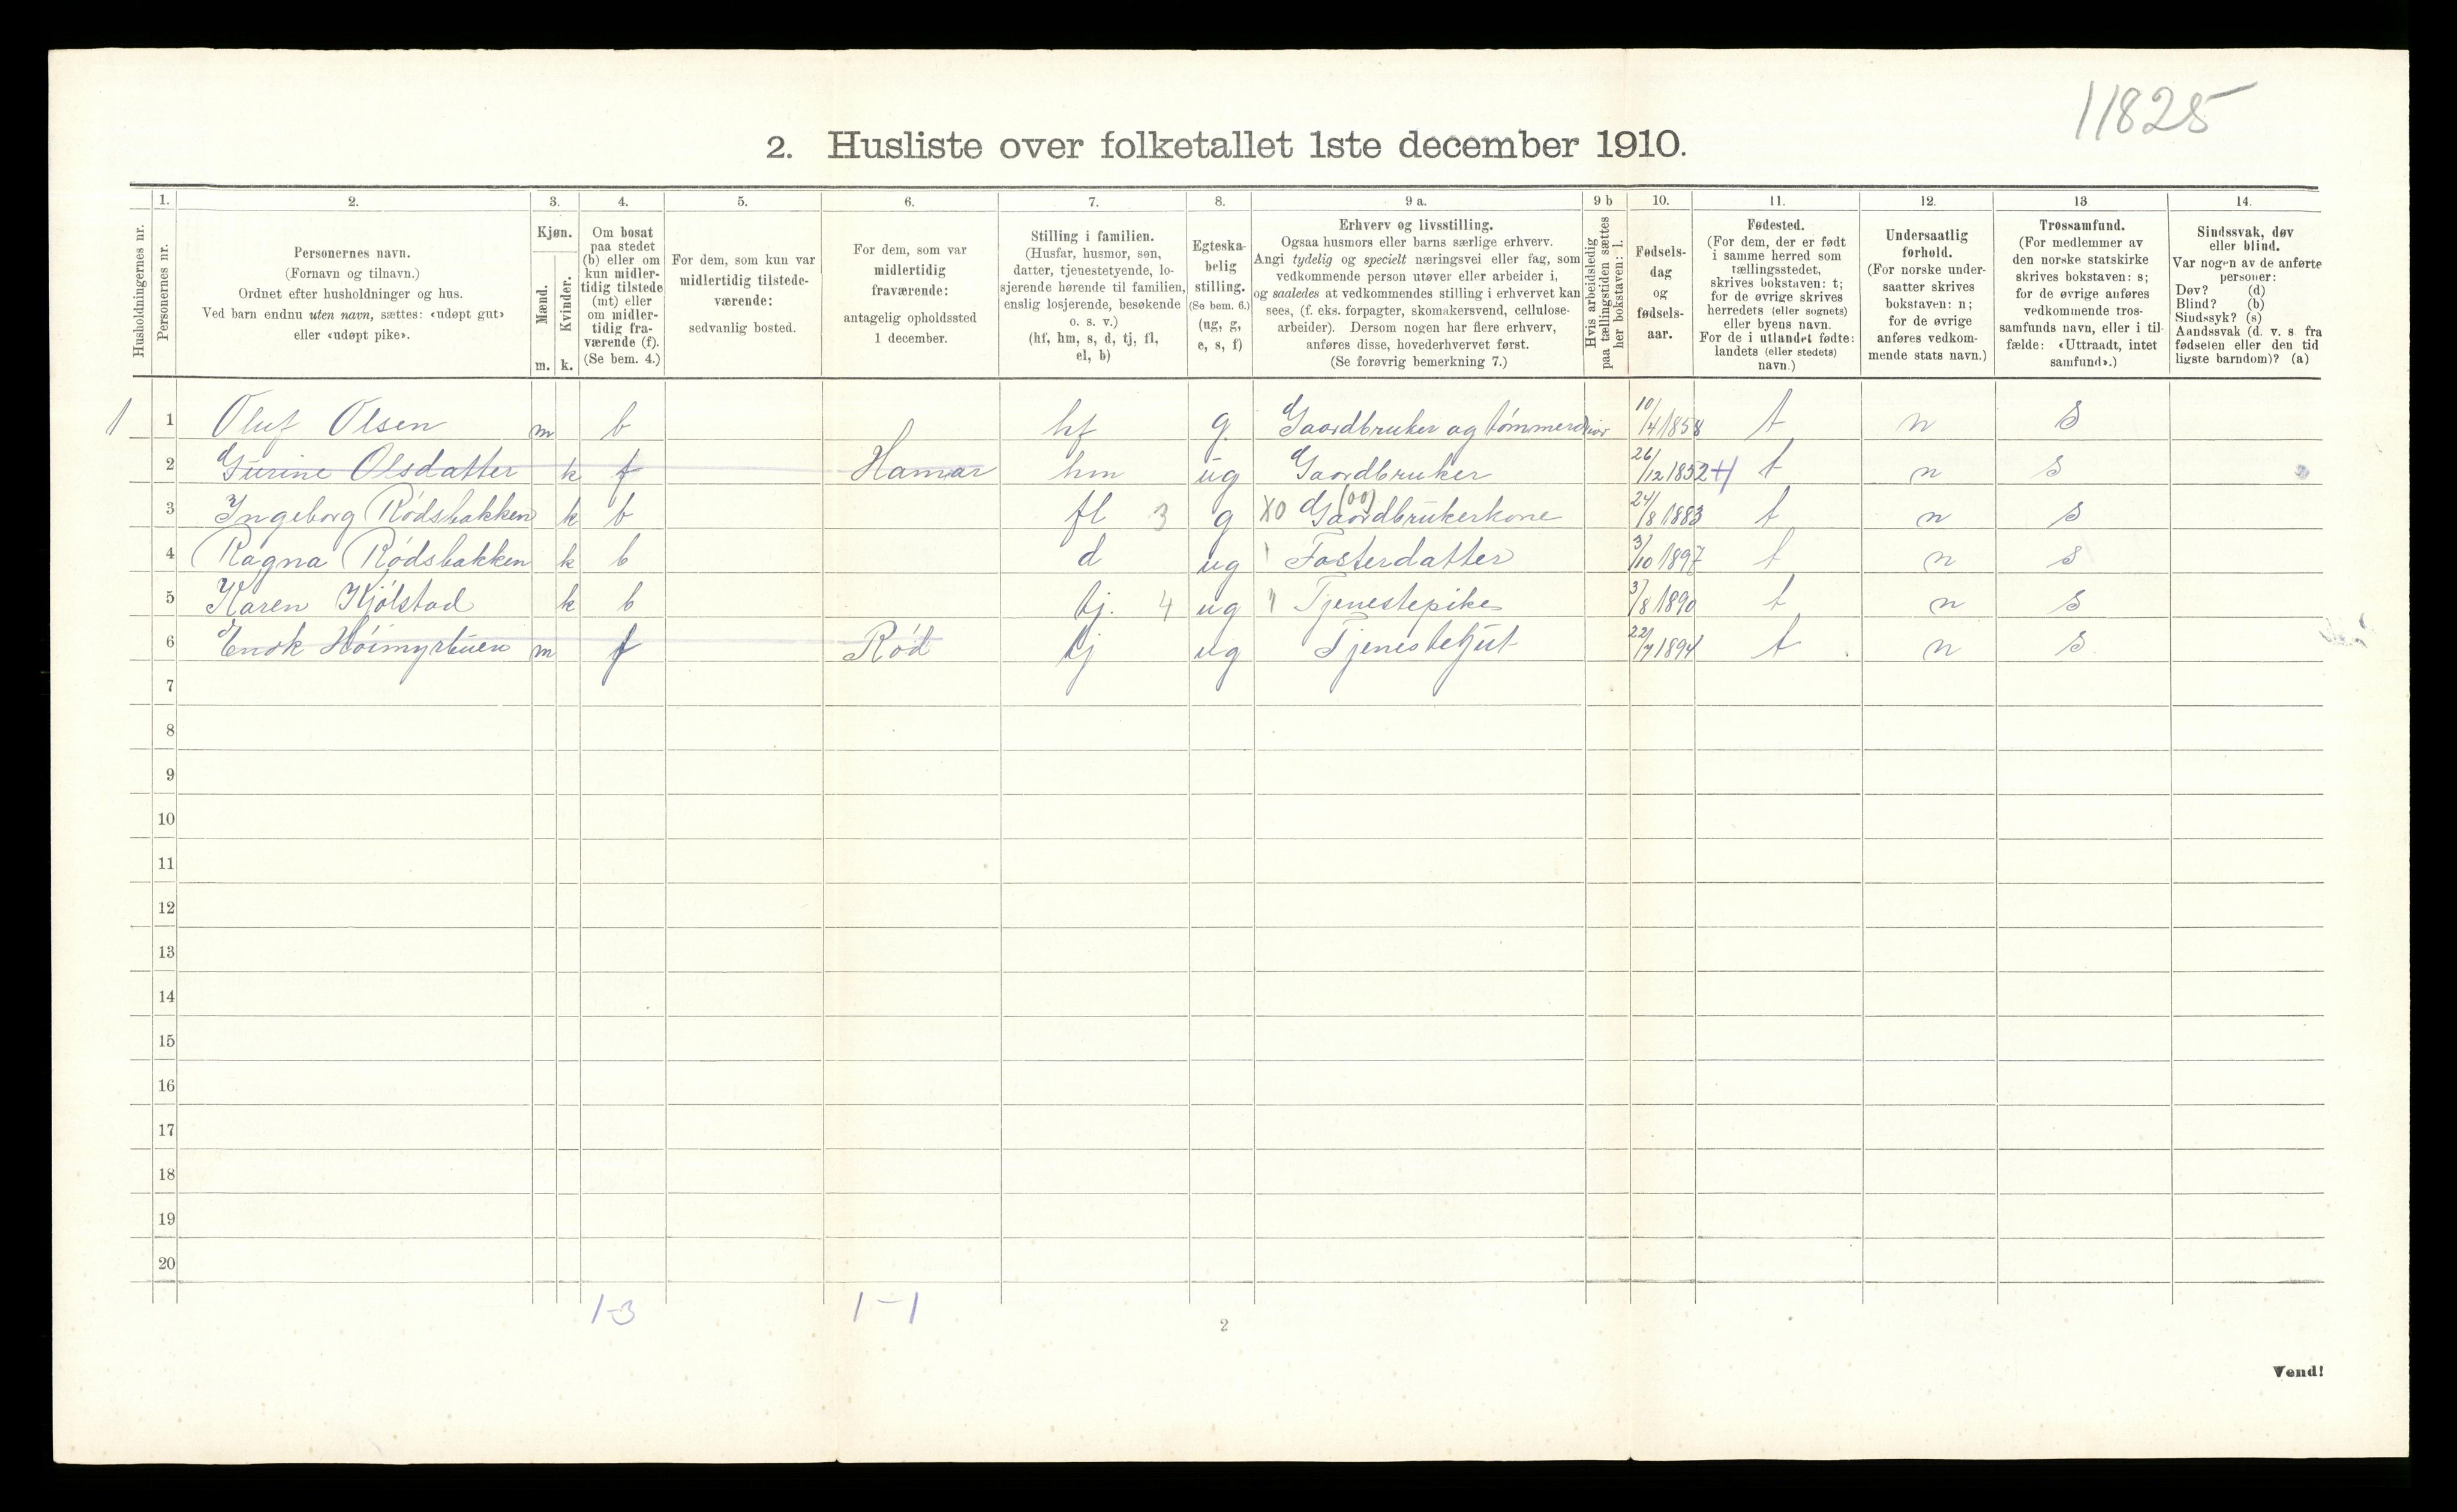 11825
2. Husliste over folketallet 1ste december 1910.
Husholdningernes nr.
1.
Personernes nr.
2.
Personernes navn.
(Fornavn og tilnavn.)
Ordnet efter husholdninger og hus.
Ved barn endnu uten navn, sættes: «udøpt gut»
eller «udøpt pike».
3.
Kjøn.
Mænd.
Kvinder.
m. k.
4.
Om bosat
paa stedet
(b) eller om
kun midler-
tidig tilstede
(mt) eller
om midler-
tidig fra-
værende (f).
(Se bem. 4.)
5.
For dem, som kun var
midlertidig tilstede-
værende:
sedvanlig bosted.
6.
For dem, som var
midlertidig
fraværende:
antagelig opholdssted
1 december.
7.
Stilling i familien.
(Husfar, husmor, søn,
datter, tjenestetyende, lo-
sjerende hørende til familien,
enslig losjerende, besøkende
o. s. v.)
(hf, hm, s, d, tj, fl,
el, b)
8.
Egteska-
belig
stilling.
(Se bem. 6.)
(ug, g,
e, s, f)
9 a.
Erhverv og livsstilling.
Ogsaa husmors eller barns særlige erhverv.
Angi tydelig og specielt næringsvei eller fag, som
vedkommende person utøver eller arbeider i,
og saaledes at vedkommendes stilling i erhvervet kan
sees, (f. eks. forpagter, skomakersvend, cellulose-
arbeider). Dersom nogen har flere erhverv,
anføres disse, hovederhvervet først.
(Se forøvrig bemerkning 7.)
9 b
Hvis arbeidsledig
paa tællingstiden sættes
her bokstaven: l.
10.
Fødsels-
dag
og
fødsels-
aar.
11.
Fødested.
(For dem, der er født
i samme herred som
tællingsstedet,
skrives bokstaven: t;
for de øvrige skrives
herredets (eller sognets)
eller byens navn.
For de i utlandet fødte:
landets (eller stedets)
navn.)
12.
Undersaatlig
forhold.
(For norske under-
saatter skrives
bokstaven: n;
for de øvrige
anføres vedkom-
mende stats navn.)
13
Trossamfund.
(For medlemmer av
den norske statskirke
skrives bokstaven: s;
for de øvrige anføres
vedkommende tros-
samfunds navn, eller i til-
fælde: «Uttraadt, intet
samfund».)
14.
Sindssvak, døv
eller blind.
Var nogen av de anførte
personer:
Døv? (d)
Blind? (b)
Sindssyk? (s)
Aandssvak (d. v. s. fra
fødselen eller den tid
ligste barndom)? (a)
1 1 Oluf Olsen m b hf g. Gaardbruker og tømmer 10/4 1858 t n s
2 Gurine Olsdatter k f Hamar hm ug Gaardbruker 26/12 1852 t n s
3 Ingeborg Rødsbakken k b fl 3 g X0 (00) Gaardbrukerkone 24/8 1883 t n s
4 Ragna Rødsbakken k b d ug Fosterdatter 3/10 1897 t n s
5 Karen Kjølstad k b tj. 4 ug Tjenestepike 3/8 1890 t n s
6 Høimyrtuen m f Rød tj ug Tjenestegut 22/7 1894 t n s
7
8
9
10
11
12
13
14
15
16
17
18
19
20
1-3 1-1
2
Vend!